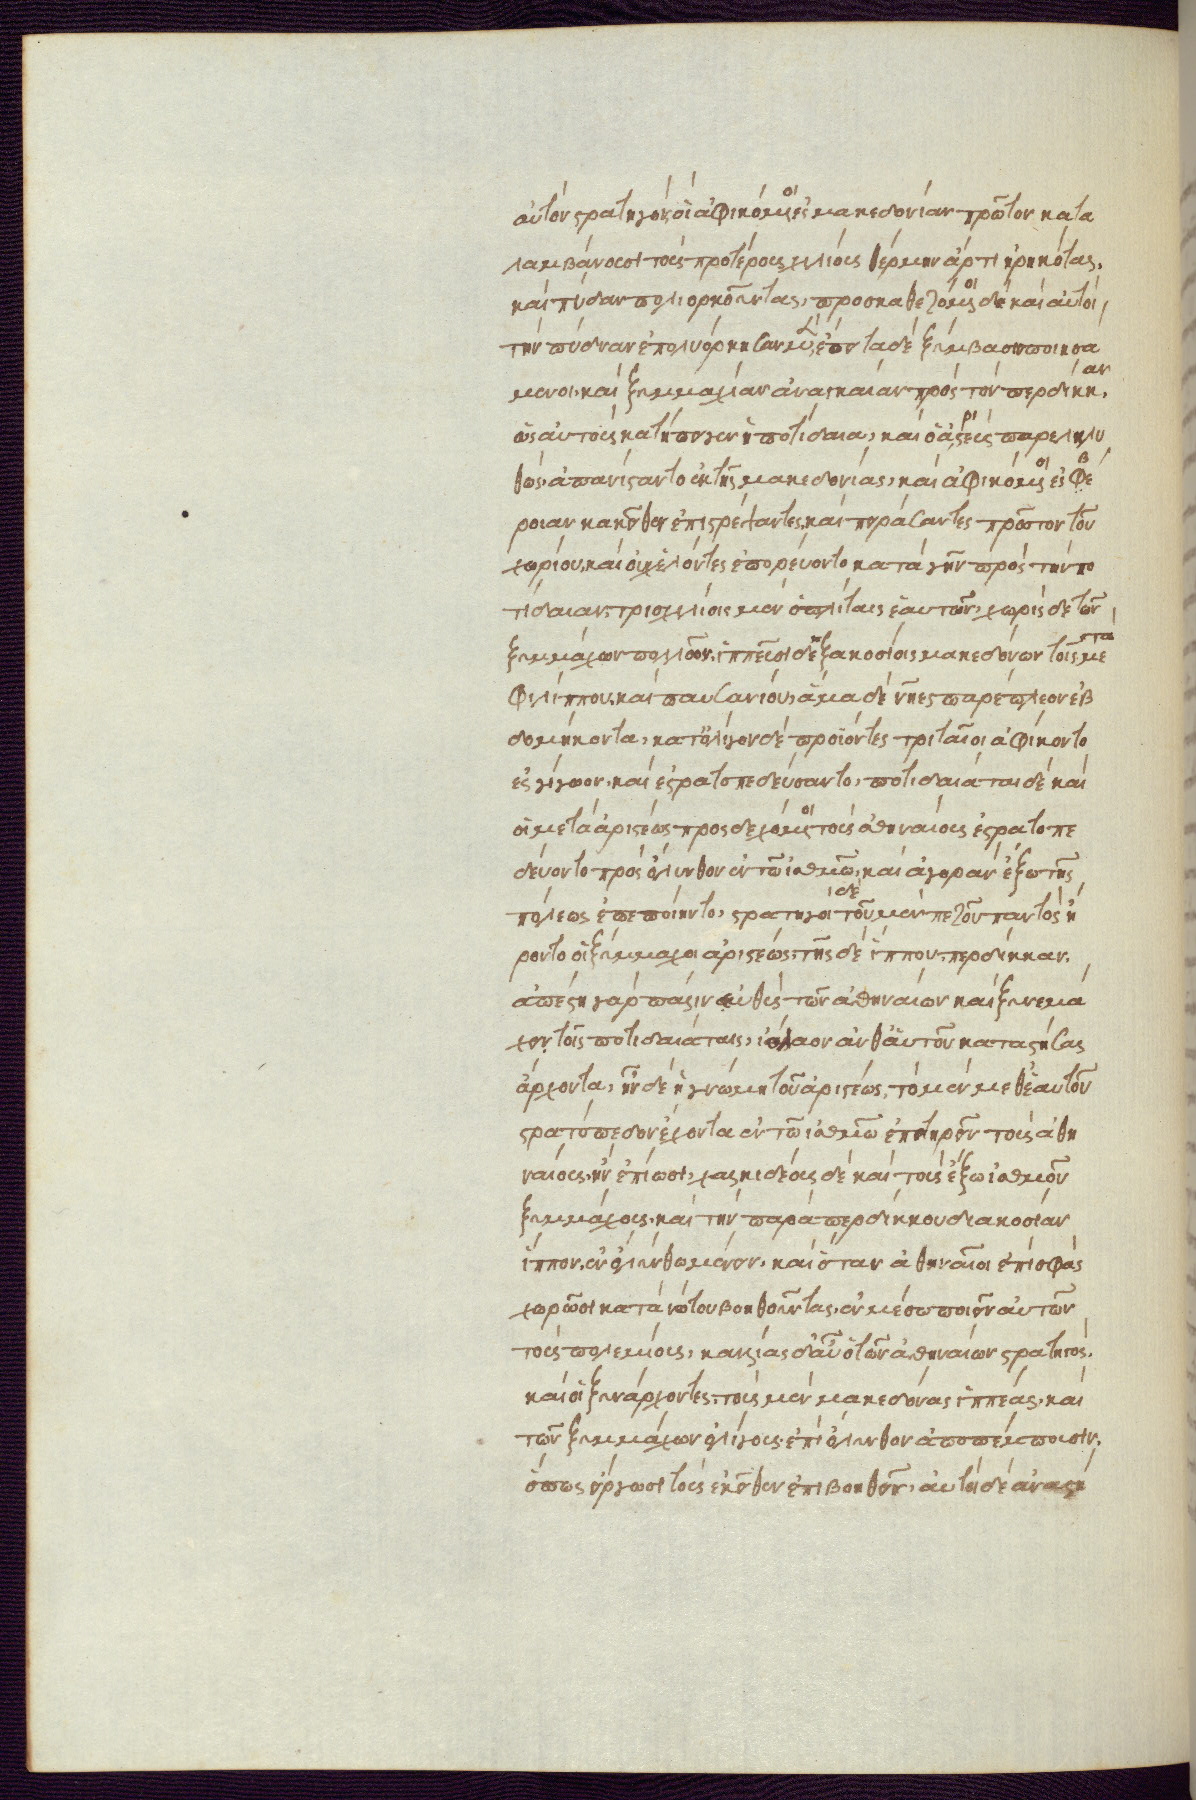 αὐτὸν στρατηγόν, οἳ ἀφικόμενοι ἐς μακεδονίαν πρῶτον κατα
λαμβάνουσι τοὺς προτέρους χιλίους θέρμην ἄρτι ἡρηκότας,
καὶ πύδναν πολιορκοῦντας, προσκαθεζόμενοι δὲ καὶ αὐτοὶ,
τὴν πύδναν ἐπολιόρκησαν μὲν, ἔπειτα δὲ ξύμβασιν ποιησά
μενοι, καὶ ξυμμαχίαν ἀναγκαίαν πρὸς τὸν περδίκκαν,
ὡς αὐτοὺς κατήπειγεν ἡ ποτίδαια, καὶ ὁ ἀριστεὺς παρεληλυ
θώς, ἀπανίσταντο ἐκ τῆς μακεδονίας, καὶ ἀφικόμενοι ἐς βέ
ροιαν κἀκεῖθεν ἐπιστρέψαντες, καὶ πειράσαντες πρῶτον τοῦ
χωρίου, καὶ οὐχ ἑλόντες ἐπορεύοντο κατὰ γῆν πρὸς τὴν πο
τίδαιαν, τρισχιλίοις μὲν ὁπλίταις ἑαυτῶν, χωρὶς δὲ τῶν
ξυμμάχων πολλῶν, ἱππεῦσι δὲ ἑξακοσίοις μακεδόνων τοῖς μετὰ
φιλίππου, καὶ παυσανίου, ἅμα δὲ νῆες παρέπλεον ἑβ
δομήκοντα, κατ' ὀλίγον δὲ προϊόντες τριταῖοι ἀφίκοντο
ἐς γίγωνον, καὶ ἐστρατοπεδεύσαντο, ποτιδαιάται δὲ καὶ
οἱ μετὰ ἀριστέως προσδεχόμενοι τοὺς ἀθηναίους ἐστρατοπε
δεύοντο πρὸς ὀλύνθου ἐν τῷ ἰσθμῷ, καὶ ἀγορὰν ἔξω τῆς
πόλεως ἐπεποίηντο, στρατηγὸν δὲ τοῦ μὲν πεζοῦ παντὸς ᾕ
ρηντο οἱ ξύμμαχοι ἀριστέως, τῆς δὲ ἵππου, περδίκκαν,
ἀπέστη γὰρ πάλιν εὐθὺς τῶν ἀθηναίων καὶ ξυνεμά
χει τοῖς ποτιδαιάταις, ἰόλαον ἀνθ' αὑτοῦ καταστήσας
ἄρχοντα, ἦν δὲ ἡ γνώμη τοῦ ἀριστέως, τὸ μὲν μεθ' ἑαυτοῦ
στρατόπεδον ἔχοντα ἐν τῷ ἰσθμῷ ἐπιτηρεῖν τοὺς ἀθη
ναίους, ἢν ἐπίωσι, χαλκιδέας δὲ καὶ τοὺς ἔξω ἰσθμοῦ
ξυμμάχους, καὶ τὴν παρὰ περδίκκου διακοσίαν
ἵππον, ἐν ὀλύνθῳ μένειν, καὶ ὅταν ἀθηναῖοι ἐπὶ σφᾶς
χωρῶσι κατὰ νώτου βοηθοῦντας, ἐν μέσῳ ποιεῖν αὐτῶν
τοὺς πολεμίους, καλλίας δ' αὖ ὁ τῶν ἀθηναίων στρατηγὸς,
καὶ οἱ ξυνάρχοντες, τοὺς μὲν μακεδόνας ἱππέας, καὶ
τῶν ξυμμάχων ὀλίγους, ἐπὶ ὀλύνθου ἀποπέμπουσιν,
ὅπως εἴργωσι τοὺς ἐκεῖθεν ἐπιβοηθεῖν, αὐτοὶ δὲ ἀναστή